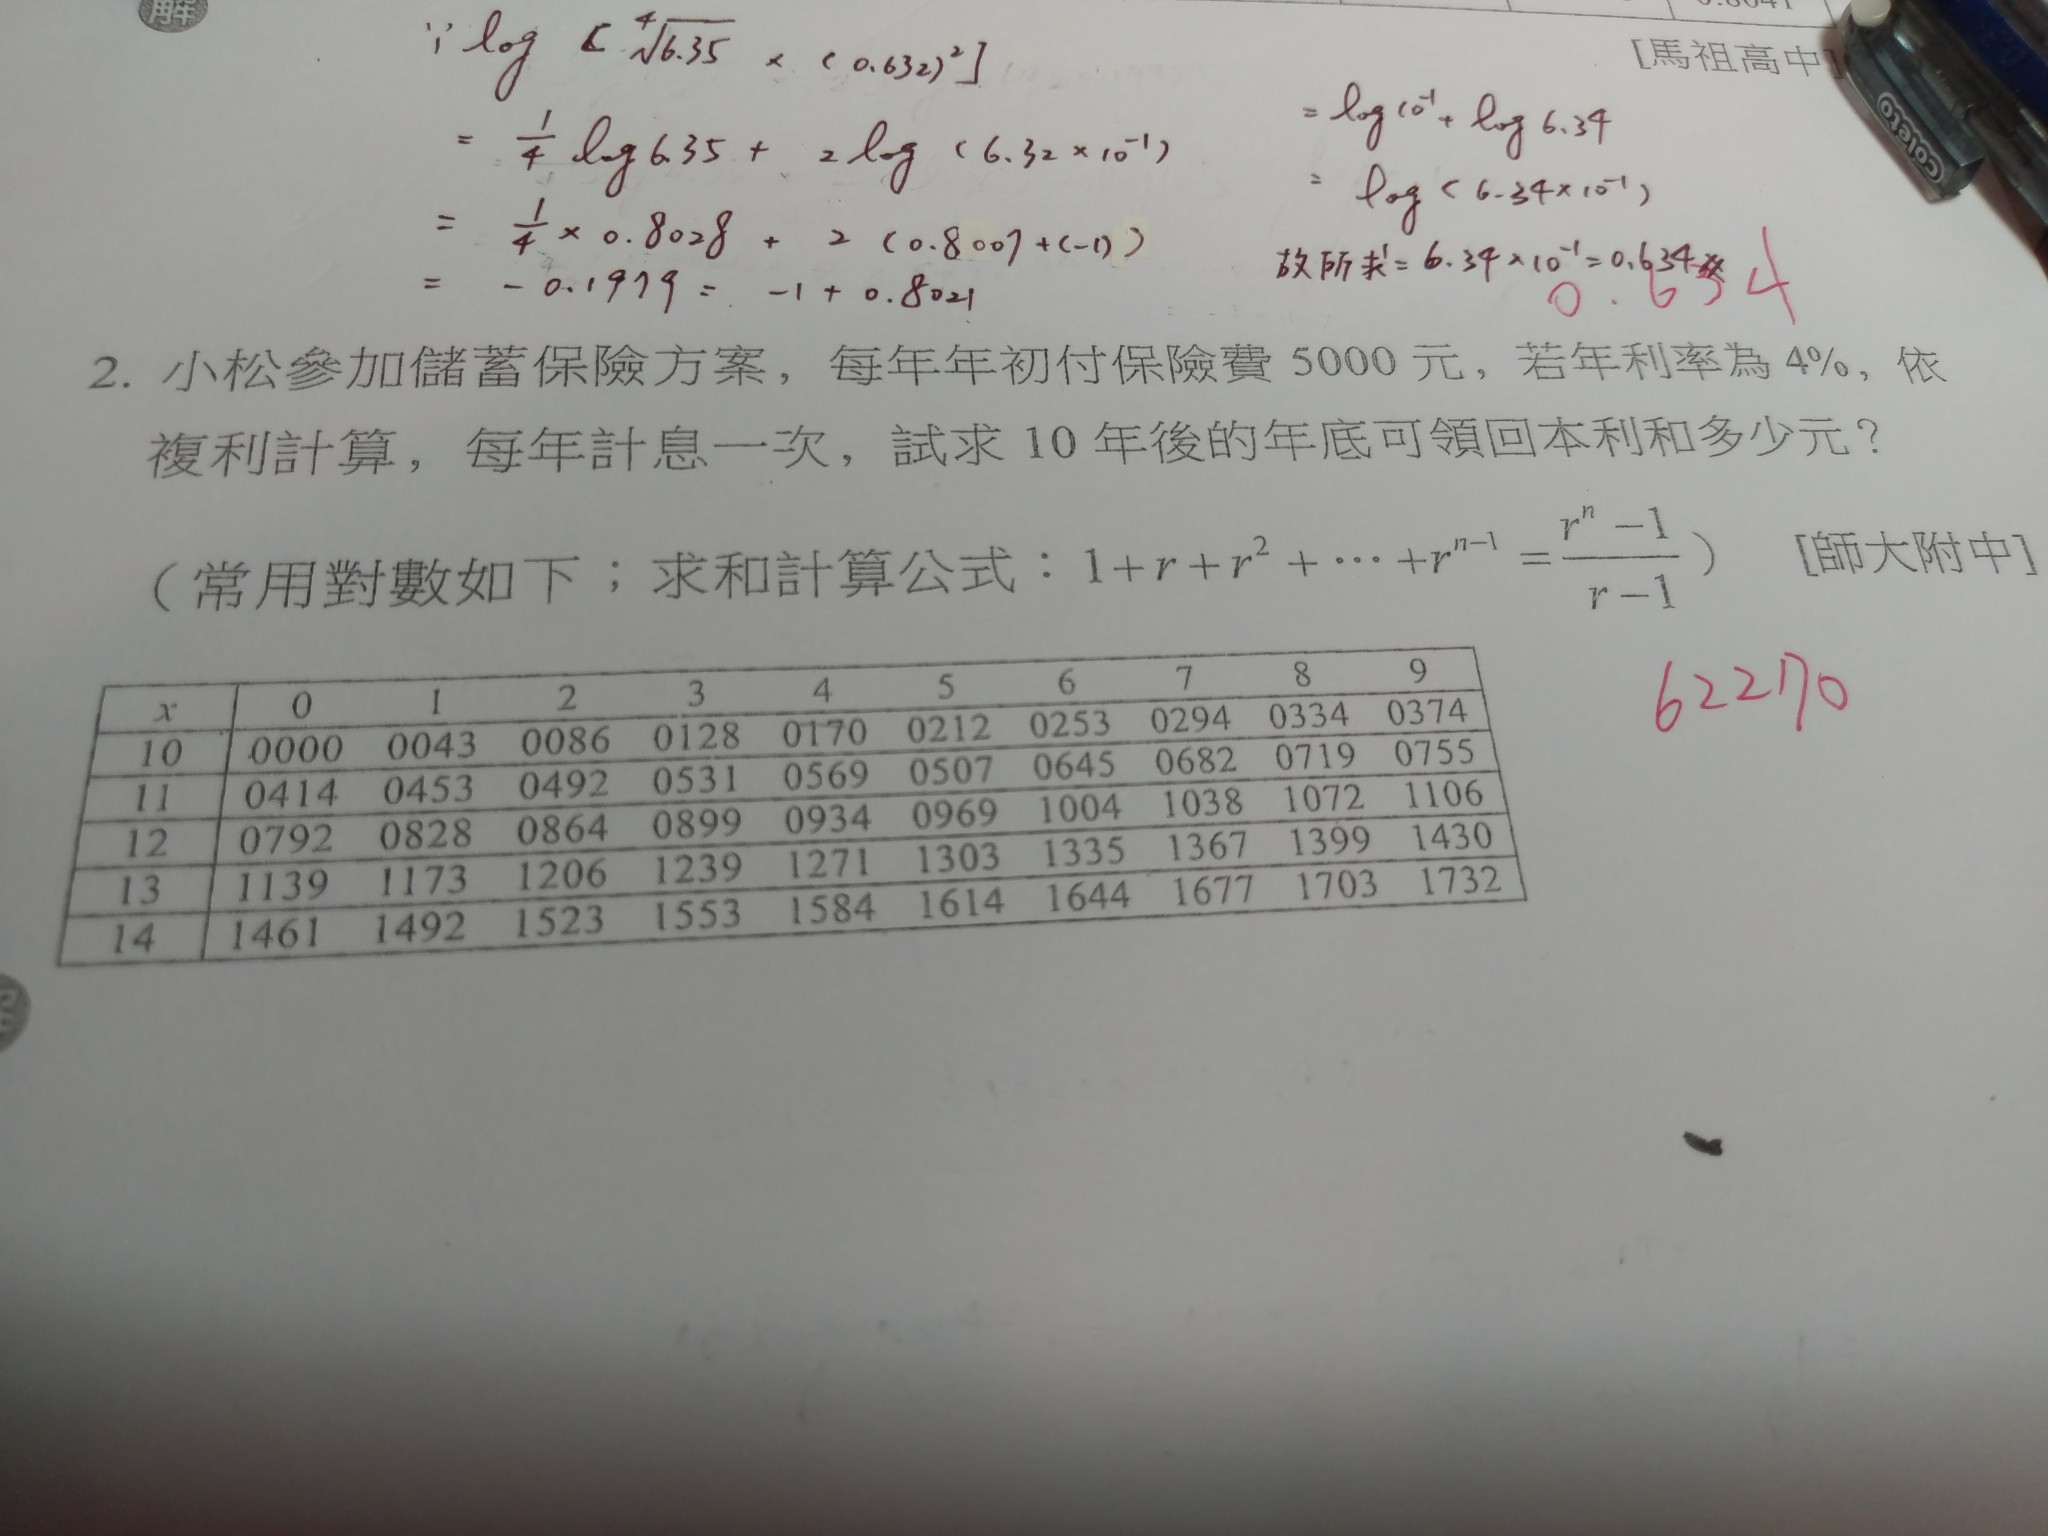 解
∵ log [ ⁴√6.35 × (0.632)² ]
= 1/4 log 6.35 + 2 log (6.32 × 10⁻¹)
= 1/4 × 0.8028 + 2 (0.8007 + (-1))
= -0.1979 = -1 + 0.8021
[馬祖高中]
= log 10⁻¹ + log 6.34
= log (6.34 × 10⁻¹)
故所求 = 6.34 × 10⁻¹ = 0.634
0.634
coleto
2. 小松參加儲蓄保險方案，每年年初付保險費 5000 元，若年利率為 4%，依
複利計算，每年計息一次，試求 10 年後的年底可領回本利和多少元？
（常用對數如下；求和計算公式：1+r+r²+⋯+rⁿ⁻¹ = (rⁿ−1)/(r−1)） [師大附中]
62270
x 0 1 2 3 4 5 6 7 8 9
10 0000 0043 0086 0128 0170 0212 0253 0294 0334 0374
11 0414 0453 0492 0531 0569 0507 0645 0682 0719 0755
12 0792 0828 0864 0899 0934 0969 1004 1038 1072 1106
13 1139 1173 1206 1239 1271 1303 1335 1367 1399 1430
14 1461 1492 1523 1553 1584 1614 1644 1677 1703 1732